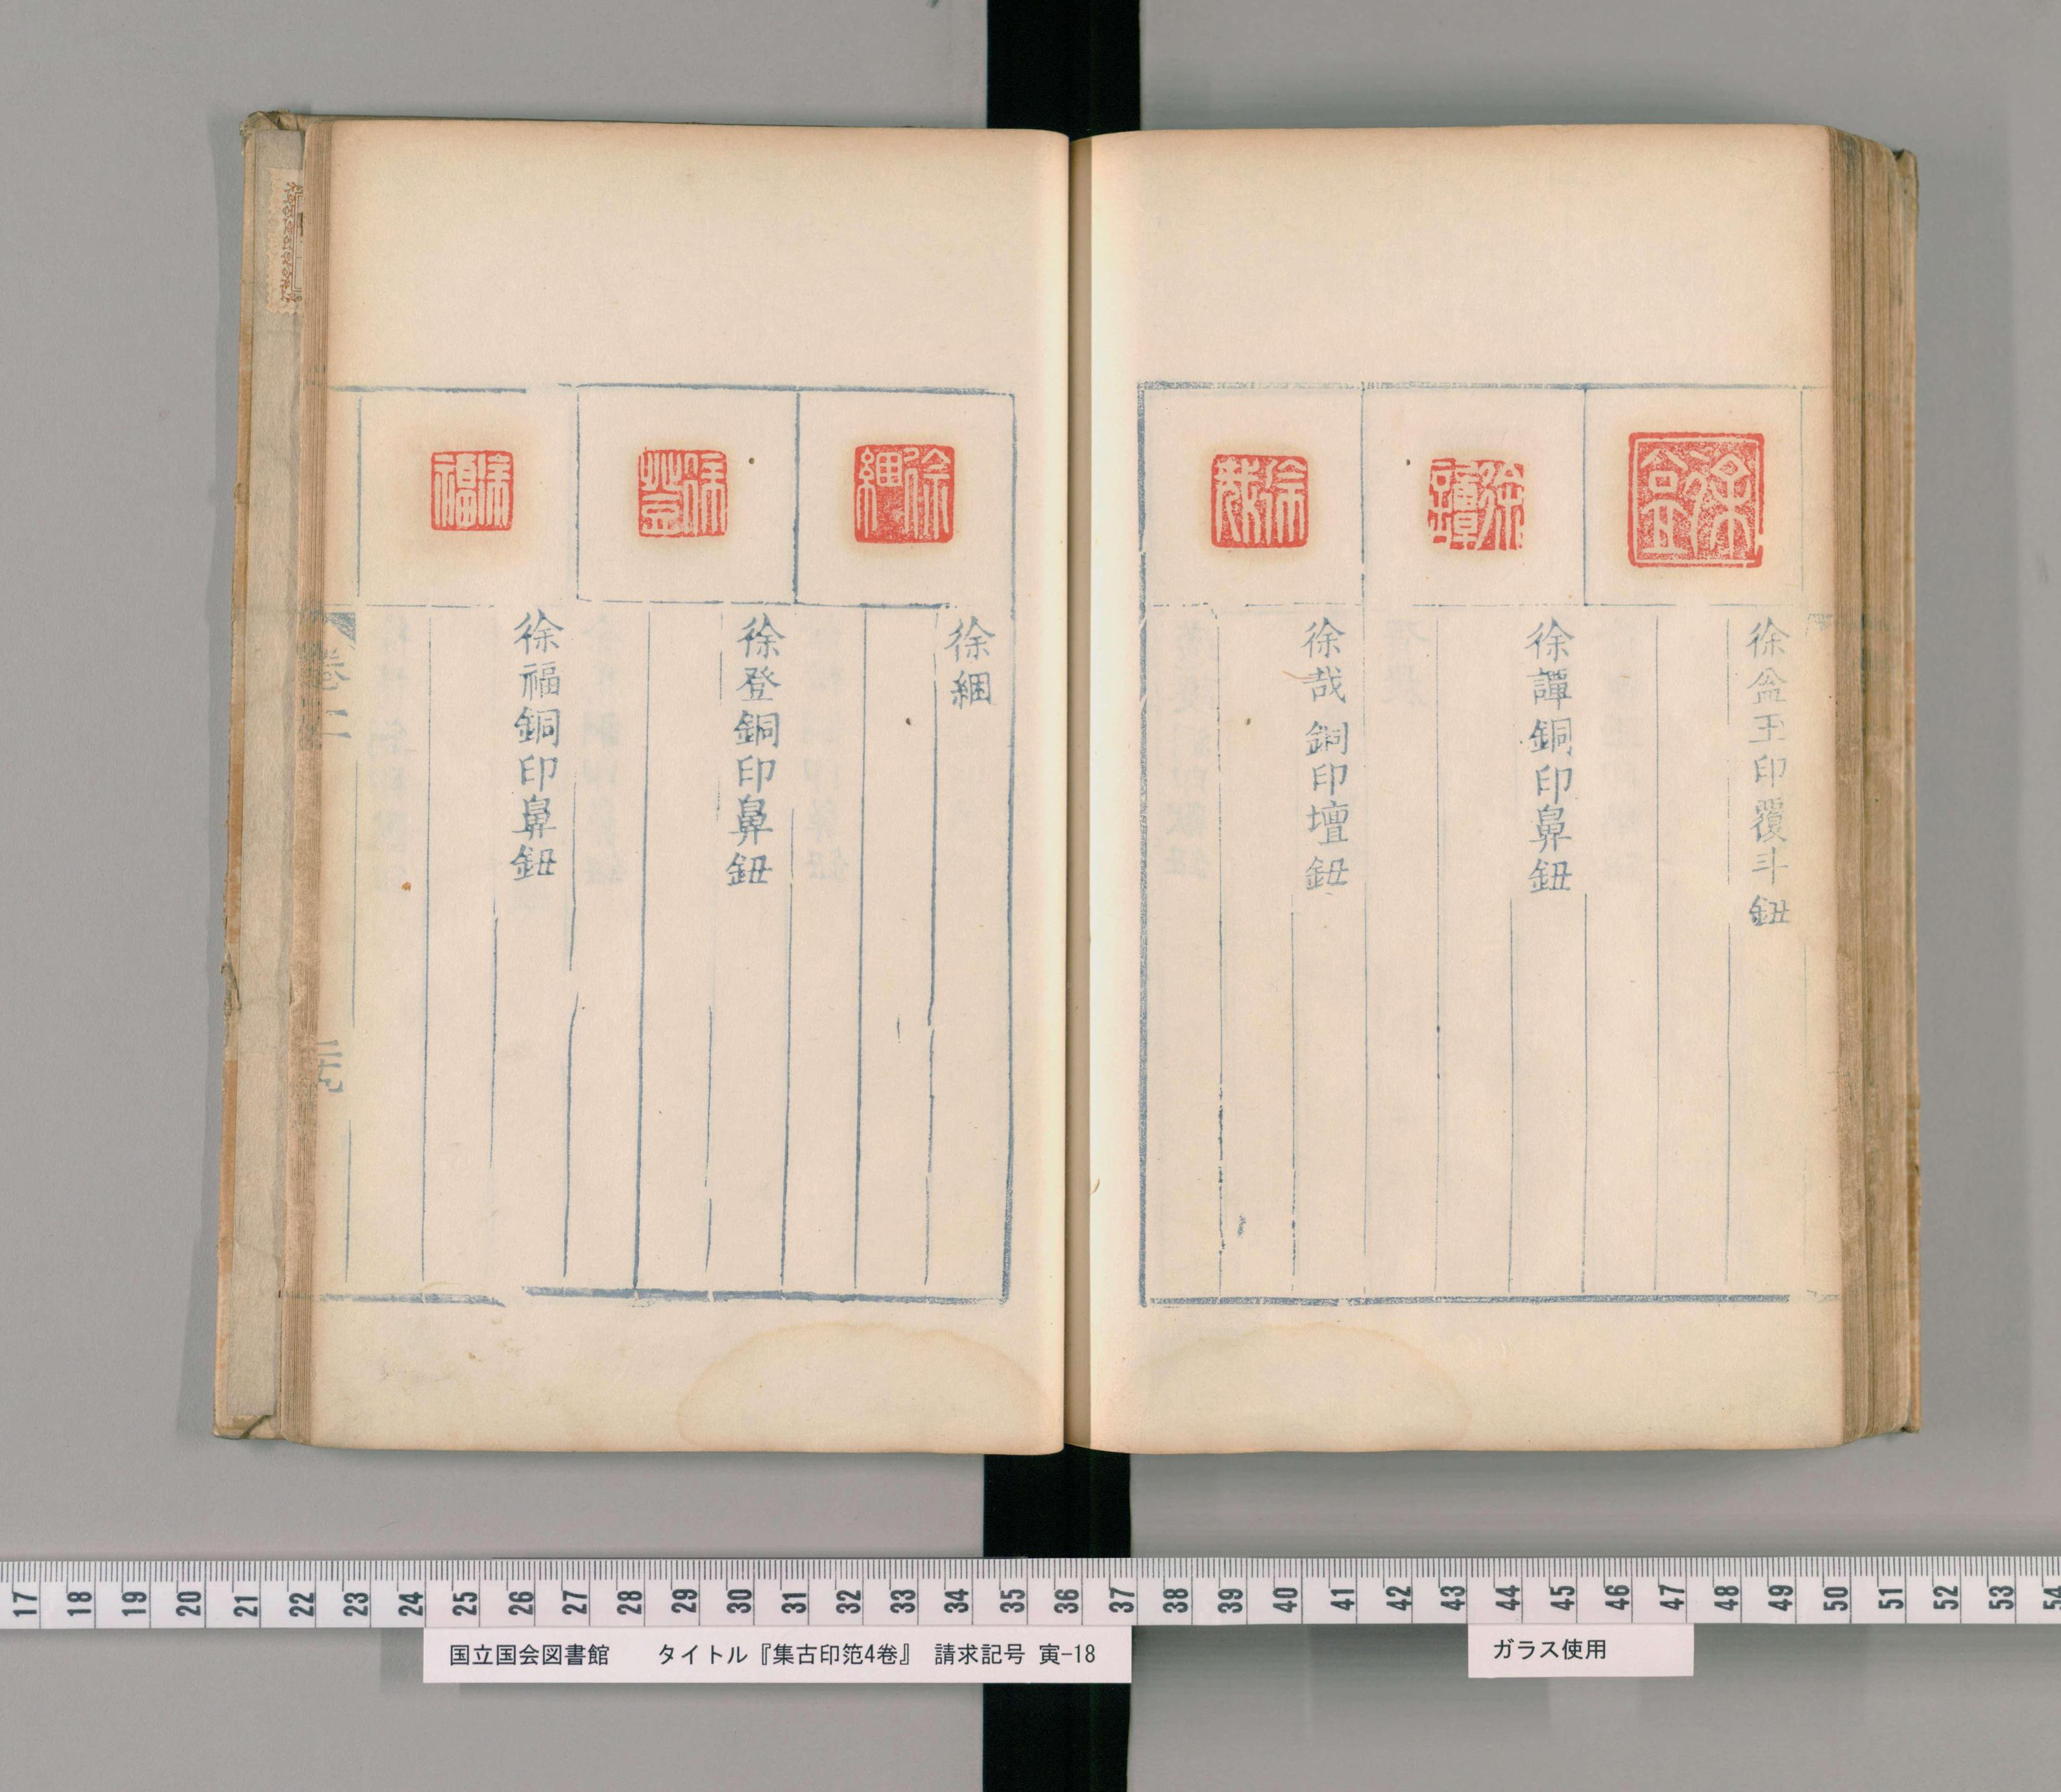 徐盆玉印覆斗鈕
徐譚銅印鼻鈕
徐哉銅印壇鈕
徐綑
徐登銅印鼻鈕
徐福銅印鼻鈕
卷二
17 18 19 20 21 22 23 24 25 26 27 28 29 30 31 32 33 34 35 36 37 38 39 40 41 42 43 44 45 46 47 48 49 50 51 52 53 54
国立国会図書館 タイトル『集古印笵4巻』 請求記号 寅-18
ガラス使用